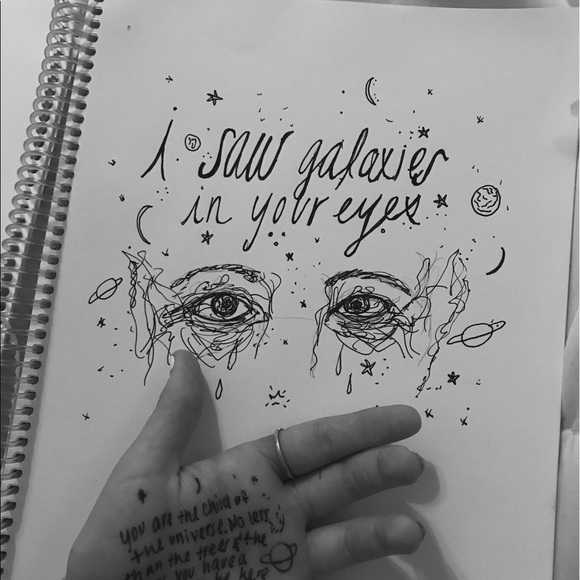 I saw galaxies
in your eyes
you are the child of
the universe. No less
than the trees & the
you have a
be here